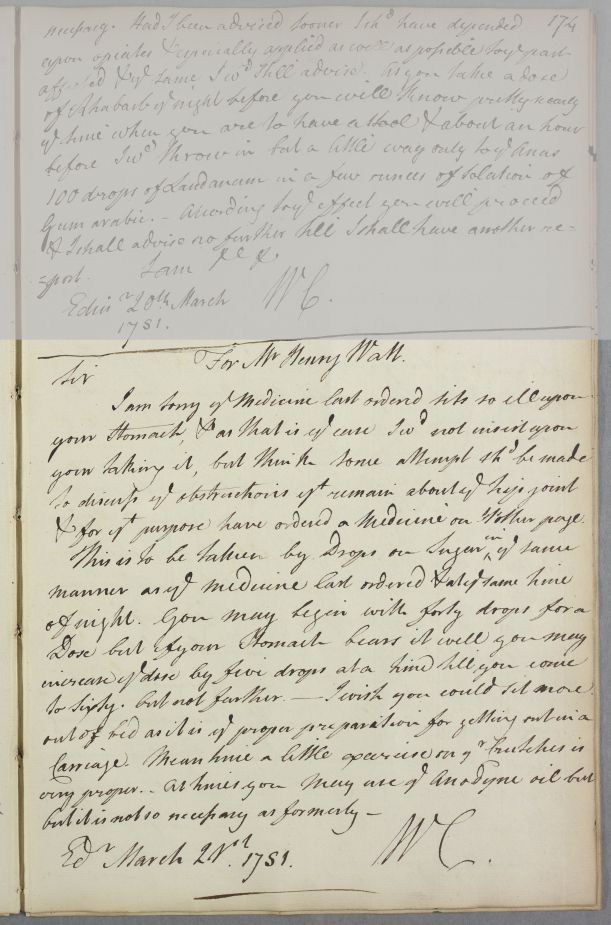 necessary. Had I been advised sooner I shd have depended 174
upon opiates & especially applied as well as possible to ye part
affected & ye same I wd still advise. As you take a dose
of Rhubarb ye night before you will know pretty nearly
ye time when you are to have a stool & about an hour
before I wd throw in but a little way only to ye Anus
100 drops of Laudanum in a few ounces of Solution of
Gum arabic. - According to ye effect you will proceed
& I shall advise no further till I shall have another re-
=port. I am &c &c
Edinr 20th March WC.
1781.
For Mr Henry Watt.
Sir
I am sorry ye Medicine last ordered sits so ill upon
your Stomach, & as that is ye case I wd not insist upon
your taking it, but think some attempt shd be made
to discuss ye obstructions yt remain about ye hip joint
& for yt purpose have ordered a Medicine on ye other page.
This is to be taken by Drops on Sugar in ye same
manner as ye medicine last ordered & at ye same time
of night. You may begin with forty drops for a
Dose but if your Stomach bears it well you may
increase ye dose by five drops at a time till you come
to sixty. but not further. — I wish you could sit more
out of bed as it is ye proper preparation for getting out in a
Carriage. Mean time a little exercise on yr Crutches is
very proper. - At times you may use ye Anodyne oil but
but it is not so necessary as formerly -
Edr March 21st. 1781. WC.